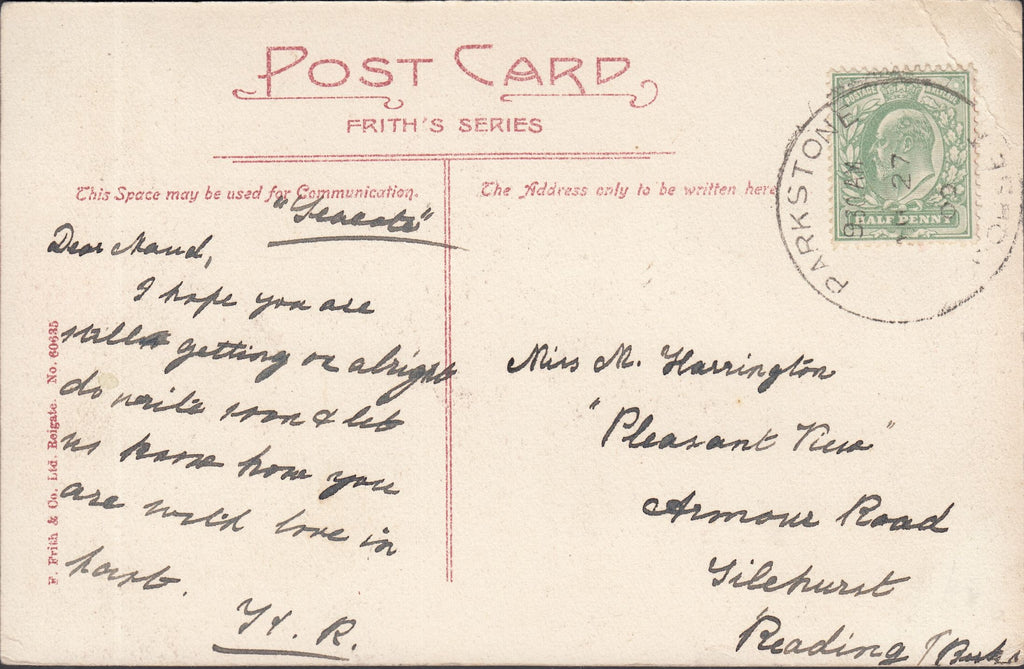 POST CARD
FRITH'S SERIES
This Space may be used for Communication.
The Address only to be written here
"Seacote"
Dear Maud,
I hope you are
still getting on alright
do write soon & let
us know how you
are with love in
haste.
H. R.
F. Frith & Co. Ltd. Reigate. No. 60635
POSTAGE
HALFPENNY
PARKSTONE
27
Miss M. Harrington
"Pleasant View"
Armour Road
Tilehurst
Reading (Berks